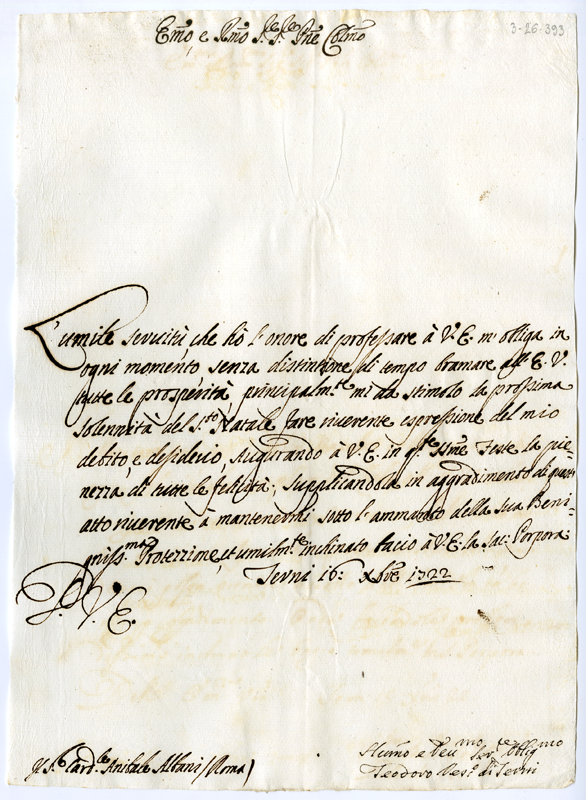 3-26-393
Em̃o, e Rm̃o S.re S.re Pñe Colm̃o
L'umile servitù che hò l'onore di professare à V.E. m'obliga in
ogni momento senza distintione di tempo bramare all'E.V.
tutte le prosperità, principalm.te mi dà stimolo la prossima
solennità del S.to Natale fare riverente espressione del mio
debito, e desiderio, Augurando à V.E. in q.te SS.me Feste la pie-
nezza di tutte le felicità; supplicandola in aggradimento di questo
atto riverente à mantenermi sotto l'ammanto della sua Beni-
gniss.ma Protezzione, et umilm.te inchinato bacio à V.E. la Sac: Porpora
Terni 16: Xbre 1722
D. V. E.
S.r Card.le Anibale Albani (Roma)
Humo e Dev.mo Ser.re Oblig.mo
Teodoro Ves.o di Terni